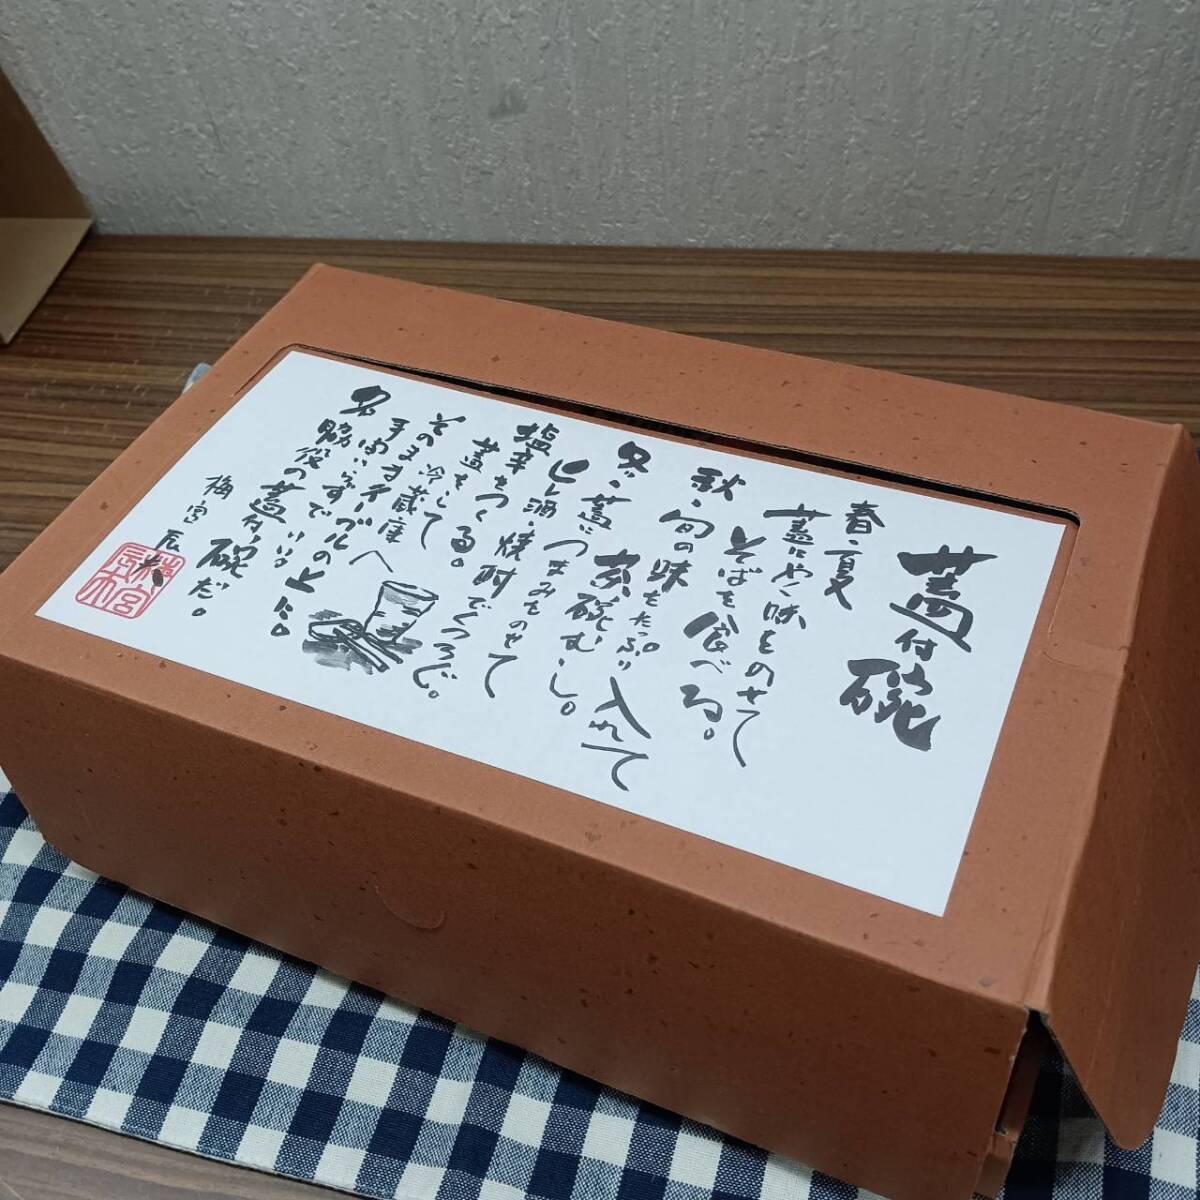 蓋付碗
春・夏
蓋にやく味をのせて
そばを食べる。
秋・旬の味をたっぷり入れて
茶碗むし。
冬・蓋につまみものせて
ヒレ酒・焼酎でくつろぐ。
塩辛をつくる。
蓋をして
そのまま冷蔵庫へ
手間いらずでテーブルの上に。
名脇役の蓋付碗だ。
梅宮辰夫
梅宮辰夫